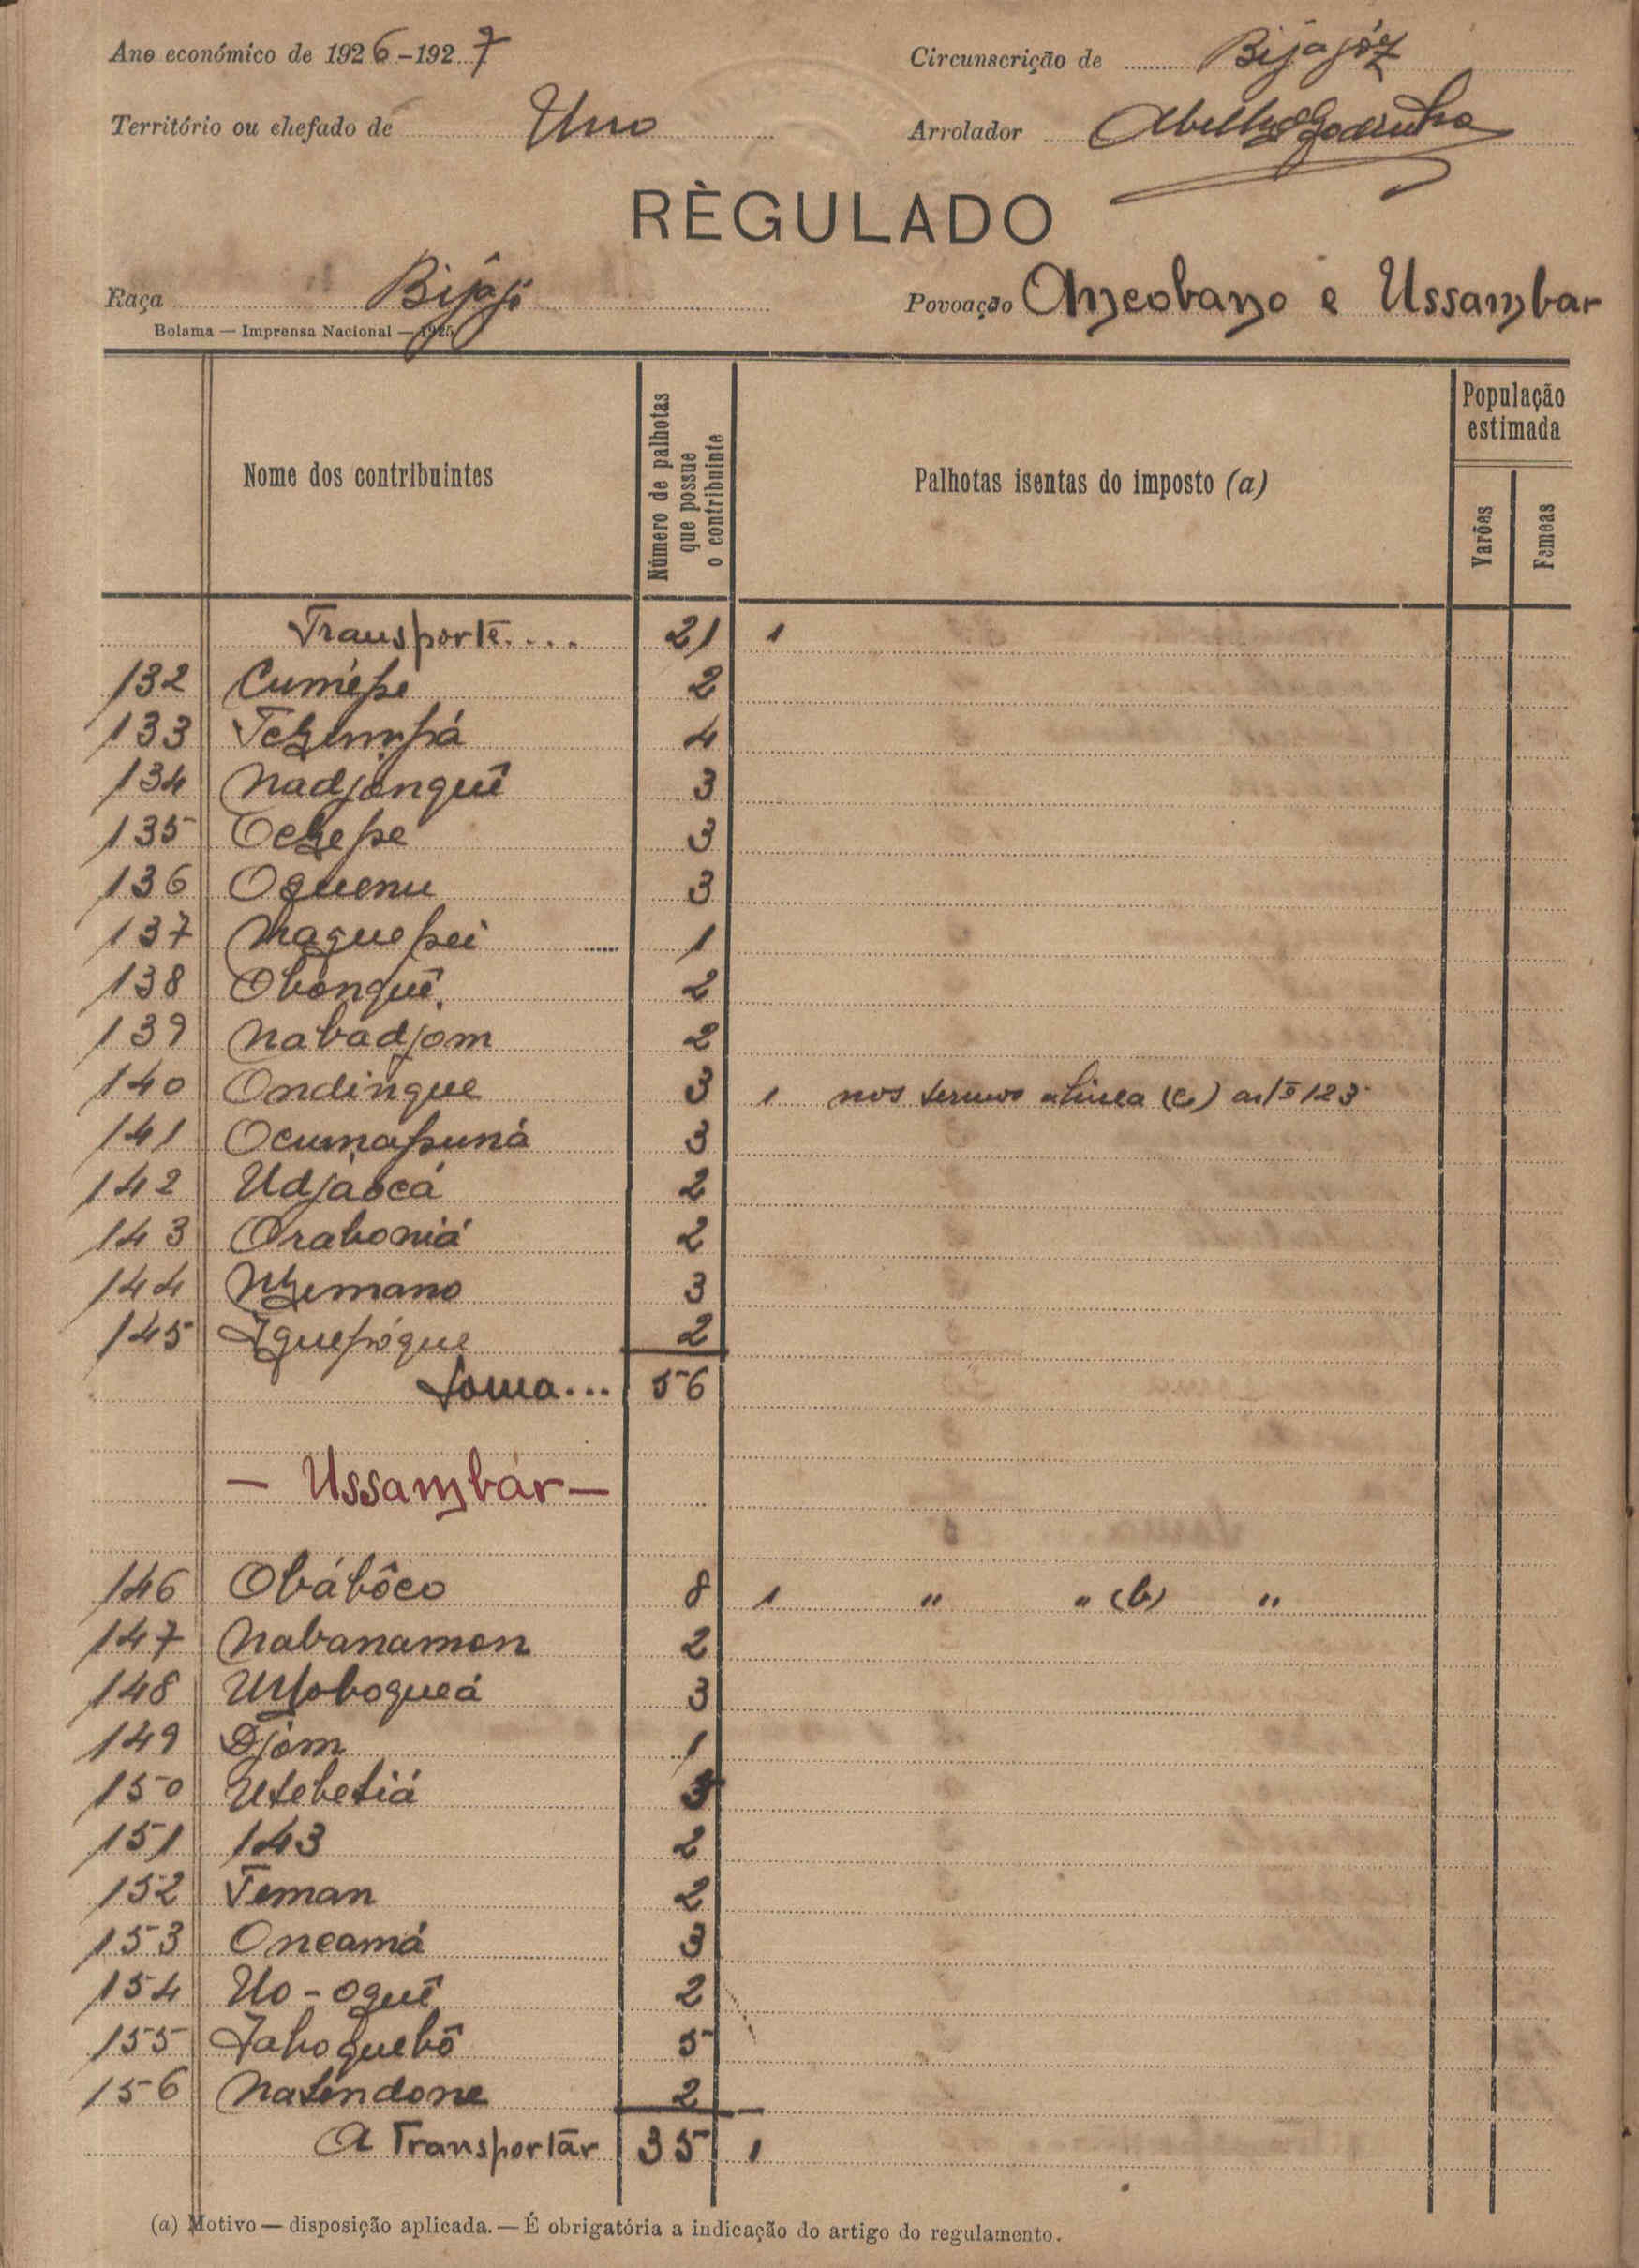 Ano económico de 1926-1927
Circunscrição de Bijagóz
Território ou chefado de Uno
Arrolador Godinho
RÈGULADO
Raça Bijagó
Povoação Ancobano e Ussambar
Bolama — Imprensa Nacional — 1925
Nome dos contribuintes
Número de palhotas que possue o contribuinte
Palhotas isentas do imposto (a)
População estimada
Varões
Femeas
Transporte.... 21 1
132 Cumépe 2
133 3 4
134 Nadjonquê 3
135 3
136 Oguenu 3
137 Naguepei 1
138 Obônquê 2
139 Nabadjom 2
140 Ondinque 3 1 nos termos alinea (c) artº 123
141 Ocumapuná 3
142 Udjaocá 2
143 Oraboniá 2
144 3
145 Iguepógue 2
Soma... 56
— Ussambár —
146 Obábôco 8 1 " " (b) "
147 Nabanamon 2
148 3
149 Djóm 1
150 Utebetiá 3
151 143 2
152 Teman 2
153 Oncamá 3
154 Uo-oquê 2
155 Jahoguebô 5
156 Naténdone 2
A Transportar 35 1
(a) Motivo — disposição aplicada. — É obrigatória a indicação do artigo do regulamento.